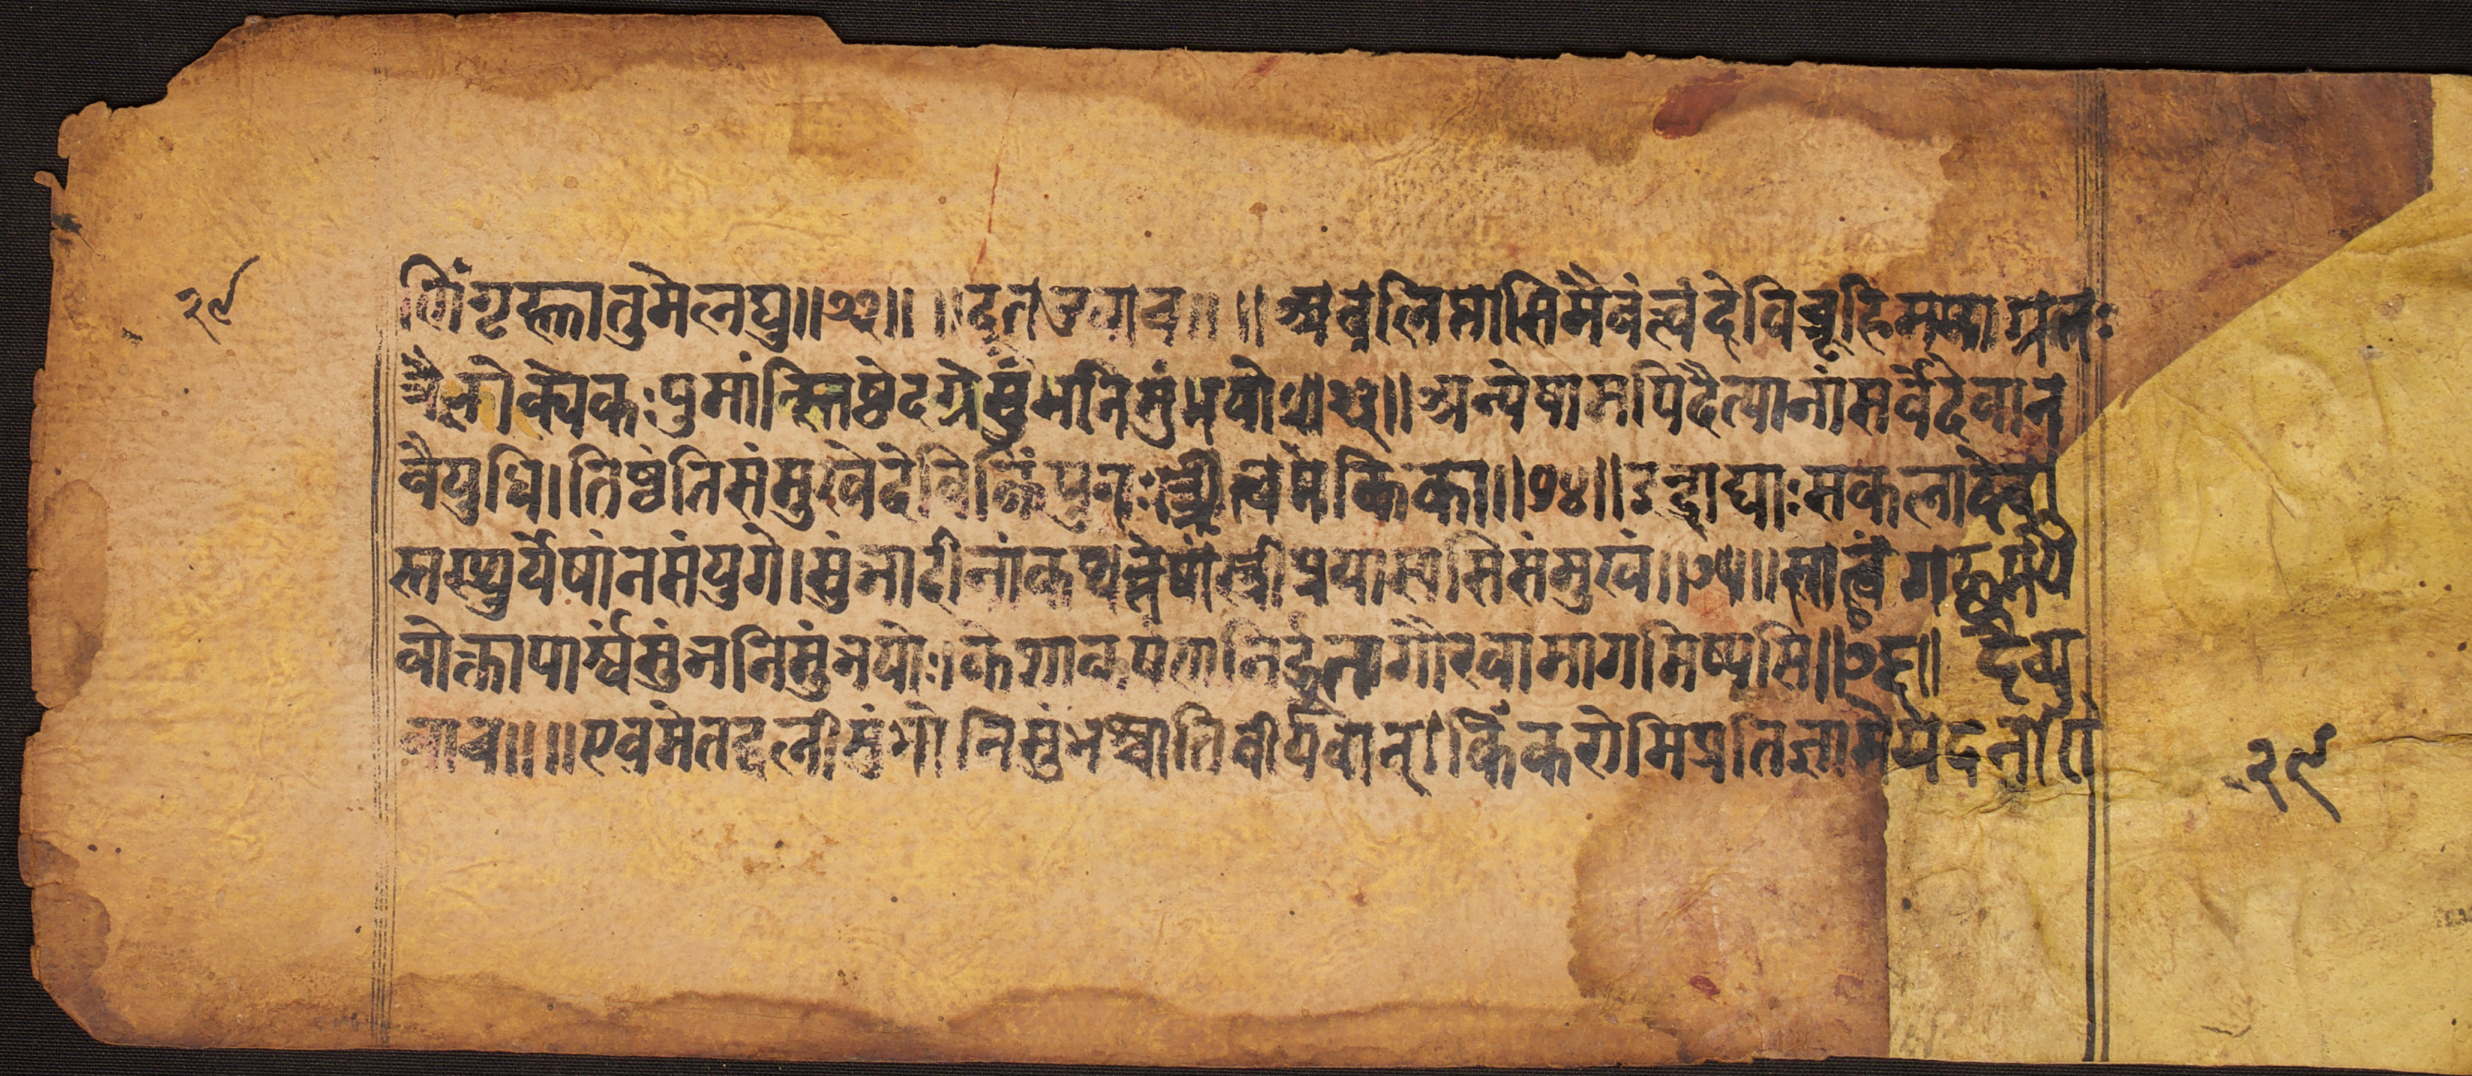 २९
णिंगृह्णातुमेलघु॥७३॥ ॥दूतउवाच॥ ॥अवलिप्तासिमैवंत्वंदेविब्रूहिममाग्रतः
त्रैलोक्येकःपुमांन्स्तिष्ठेदग्रेसुंभनिसुंभयोः॥अन्येषामपिदैत्यानांसर्वेदेवान
वैयुधि।तिष्ठंतिसंमुखेदेविकिंपुनःस्त्रीत्वमेकिका॥७४॥इन्द्राद्याःसकलादेवा
स्तस्थुर्येषांनसंयुगे।सुंभादीनांकथन्तेषांस्त्रीप्रयास्यसिसंमुखं॥७५॥सात्वंगच्छमयै
वोक्तापार्श्वंसुंभनिसुंभयोः।केशाकर्षणनिर्द्धूतागौरवामागमिष्यसि॥७६॥ देव्यु
वाच॥ ॥एवमेतद्बलीसुंभोनिसुंभश्चातिवीर्यवान्।किंकरोमिप्रतिज्ञामेयदनालो
२९